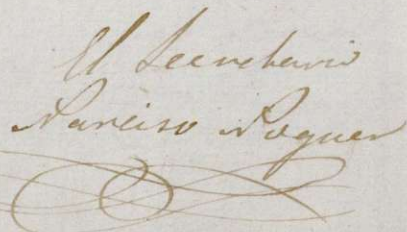 El Secretario
Narciso Roguer